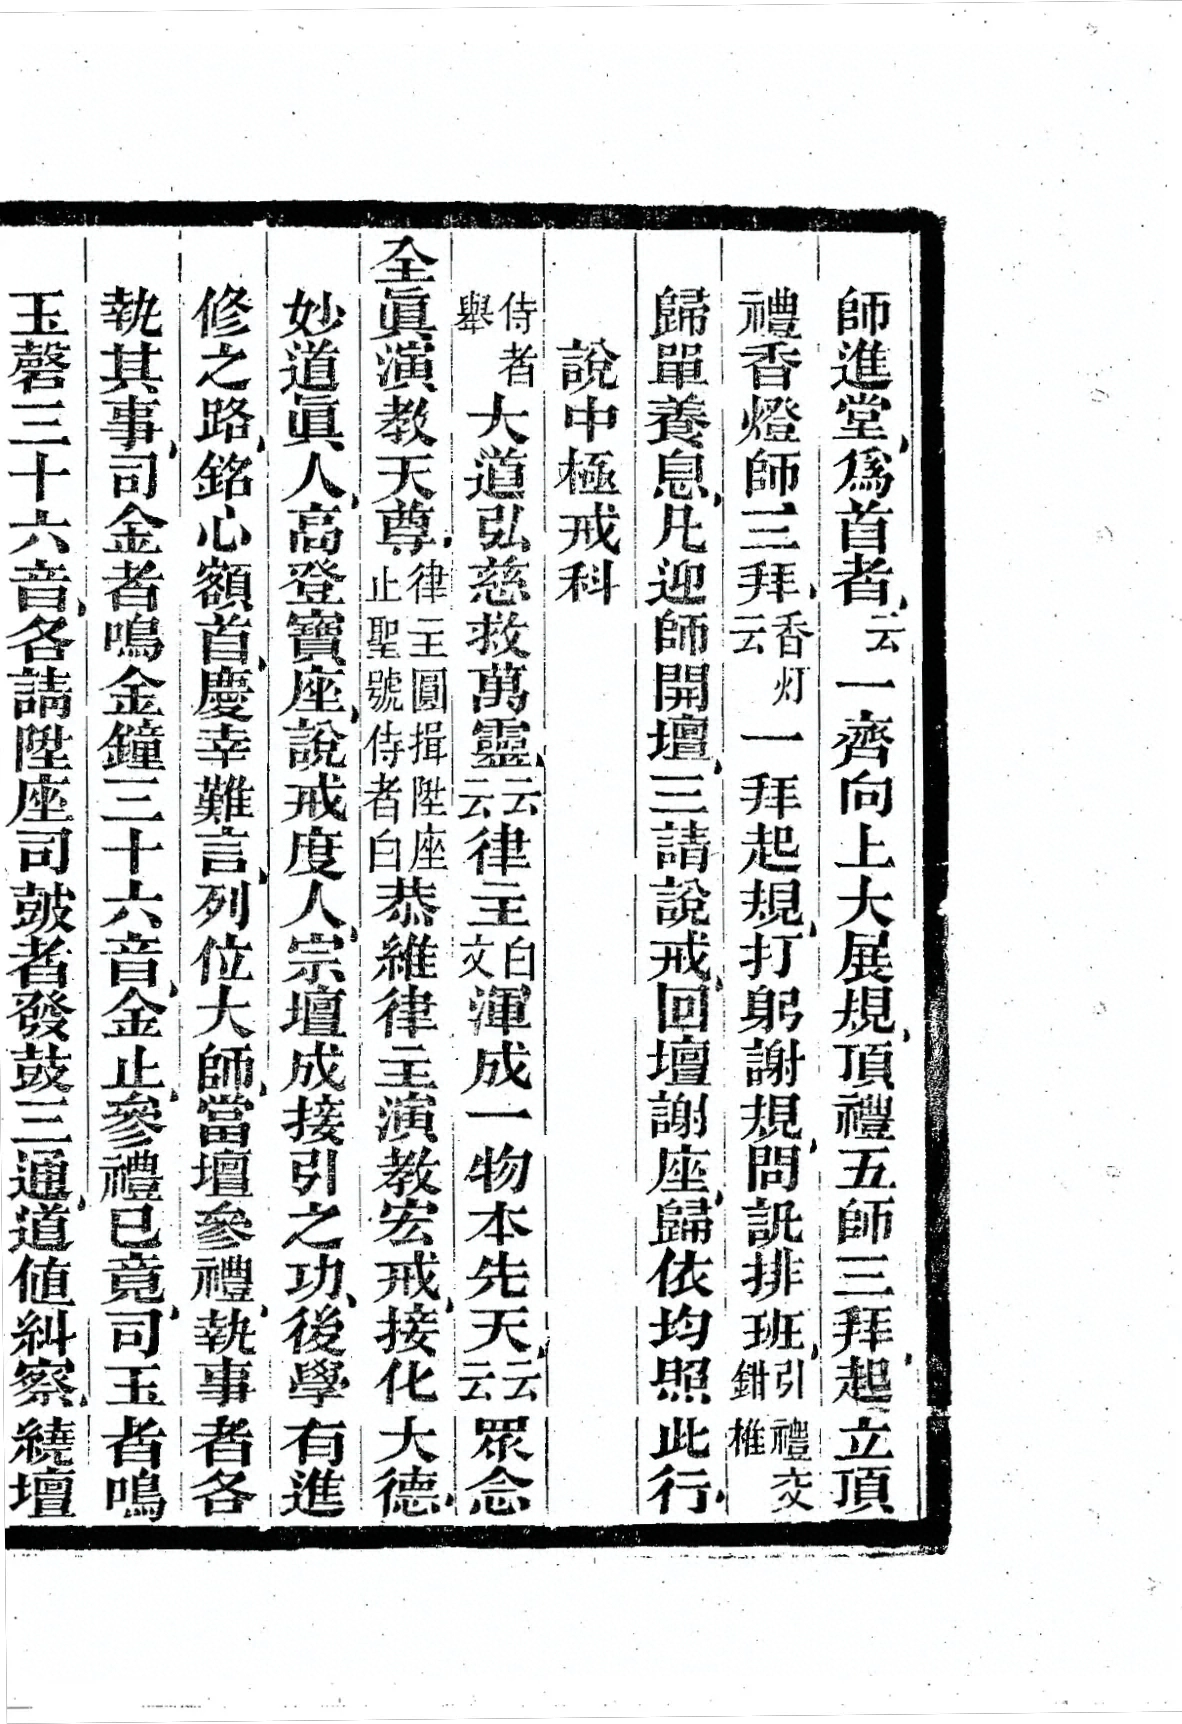 師進堂、爲首者、云一齊向上大展規、頂禮五師三拜、起立頂
禮香燈師三拜、香灯云一拜起規、打躬謝規、問訊排班、引禮交鉗椎
歸單養息、凡迎師開壇、三請說戒、回壇謝座、歸依均照此行、
說中極戒科
侍者舉大道弘慈救萬靈、云云律主白文渾成一物本先天、云云眾念
全眞演教天尊、律主圓揖陞座止聖號侍者白恭維律主演教宏戒、接化大德、
妙道眞人、高登寶座、說戒度人、宗壇成接引之功、後學有進
修之路、銘心額首、慶幸難言、列位大師、當壇參禮、執事者各
執其事、司金者鳴金鐘三十六音、金止、參禮已竟、司玉者鳴
玉磬三十六音、各請陞座司皷者發鼓三通、道值糾察、繞壇